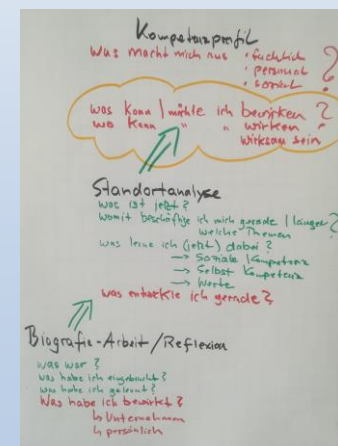 Kompetenzprofil
Was macht mich aus • fachlich
• personal
• sozial ?
was kann | möchte ich bewirken ?
wo kann " " wirken
wirksam sein
Standortanalyse
was ist jetzt ?
womit beschäftige ich mich gerade | länger ?
welche Themen
was lerne ich (jetzt) dabei ?
→ Soziale Kompetenz
→ Selbst Kompetenz
→ Werte
was entwickle ich gerade ?
Biografie-Arbeit / Reflexion
was war ?
was habe ich eingebracht ?
was habe ich gelernt ?
Was habe ich bewirkt ?
↳ Unternehmen
↳ persönlich